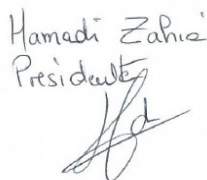 Hamadi Zahié
Presidente